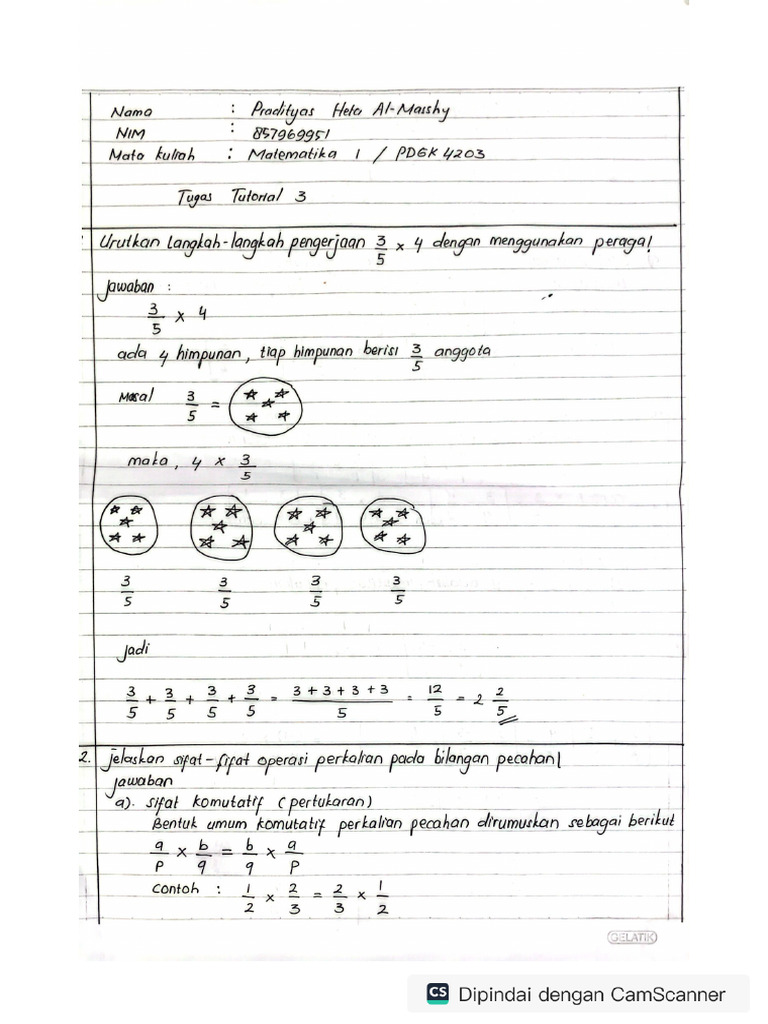 Nama : Pradityas Heta Al-Marshy
NIM : 857969951
Mata kuliah : Matematika 1 / PDGK 4203
Tugas Tutorial 3
Urutkan langkah-langkah pengerjaan 3/5 x 4 dengan menggunakan peraga!
Jawaban :
3/5 x 4
ada 4 himpunan, tiap himpunan berisi 3/5 anggota
Misal 3/5 =
maka, 4 x 3/5
3/5 3/5 3/5 3/5
Jadi
3/5 + 3/5 + 3/5 + 3/5 = 3 + 3 + 3 + 3/5 = 12/5 = 2 2/5
2. Jelaskan sifat-sifat operasi perkalian pada bilangan pecahan!
Jawaban
a). Sifat komutatif (pertukaran)
Bentuk umum komutatif perkalian pecahan dirumuskan sebagai berikut
a/p x b/q = b/q x a/p
Contoh : 1/2 x 2/3 = 2/3 x 1/2
GELATIK
CS Dipindai dengan CamScanner